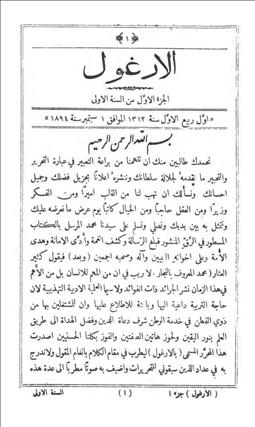 ﴿ ١ ﴾
الارغول
الجزء الاول من السنة الاولى
« اول ربيع الاول سنة ١٣١٢ الموافق ١ سبتمبر سنة ١٨٩٤ »
بسم الله الرحمن الرحيم
نحمدك طالبين منك ان تلهمنا من براعة التعبير في عبارة التحرير
والتحبير ما نقدمه لجلالة سلطانك ونشره اعلانًا بجزيل فضلك وجميل
احسانك ونسألك ان تهب لنا من القلب اميرًا ومن الفكر
وزيرًا ومن العقل حاجبًا ومن الخيال كاتبًا يوم عرض ما نعرضه عليك
ونتمثل به بين يديك ونصلي ونسلم على سيدنا محمد المرسل بالكتاب
المسطور في الرق المنشور فبلغ الرسالة وكشف الغمة وأدى الامانة وهدى
الأمة وعلى اخوانه النبيين وآله وصحبه اجمعين ( وبعد ) فيقول كثير
العثار محمد المعروف بالنجار لا ريب في ان من المنع للانسان بل من الأهم
في هذا الزمان نشر الجرائد ذات الفوائد ولاسيما العلمية الادبية التهذيبية لان
حاجة التربية داعية اليها وباعثة للاطلاع عليها وان للمشتغلين بها من
ذوي الفطن في خدمة الوطن شرف دعاة الدين وفضل الهداة الى طريق
العلم بنور اليقين ولحوز هاتين الصفتين والفوز بكلتا الحسنيين اصدرت
هذا المحرر المسمى ( بالارغول ) ليطرب في مقام الكلام بانغام المقول ولاندرج
به في عداد الذين سبقوني للتحريرات واضيف به صوتًا مطربًا الى عدة هذه
( الارغول ) جزء ١ ( ١ ) السنة الاولى